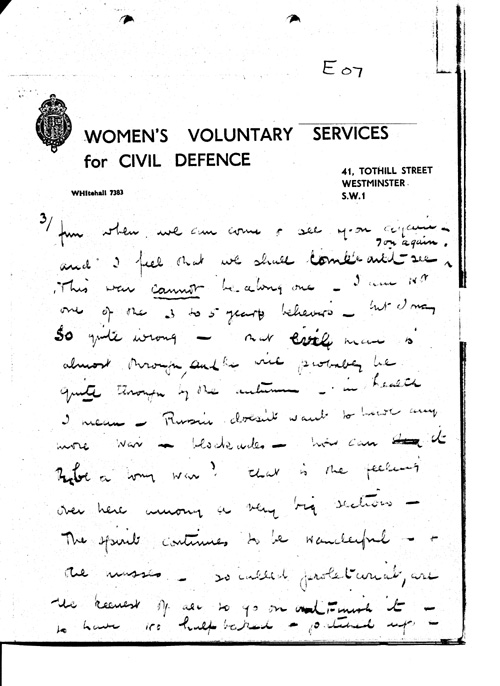 E 07
WOMEN'S VOLUNTARY SERVICES
for CIVIL DEFENCE
41, TOTHILL STREET
WESTMINSTER
S.W.1
WHItehall 7383
3/
fun when we can come & see you again –
you again.
and I feel that we shall come and see
This war cannot be a long one – I am not
one of the 3 to 5 years believers – but I may
so quite wrong – that evil man is
almost through, and he will probably be
quite through by the autumn – in health
I mean – Russia doesn't want to have any
more war – blockades – how can it
be a long war? That is the feeling
over here among a very big section –
The spirit continues to be wonderful – &
the masses – so called proletariat, are
the keenest of all to go on and finish it –
to have no half baked – patched up –